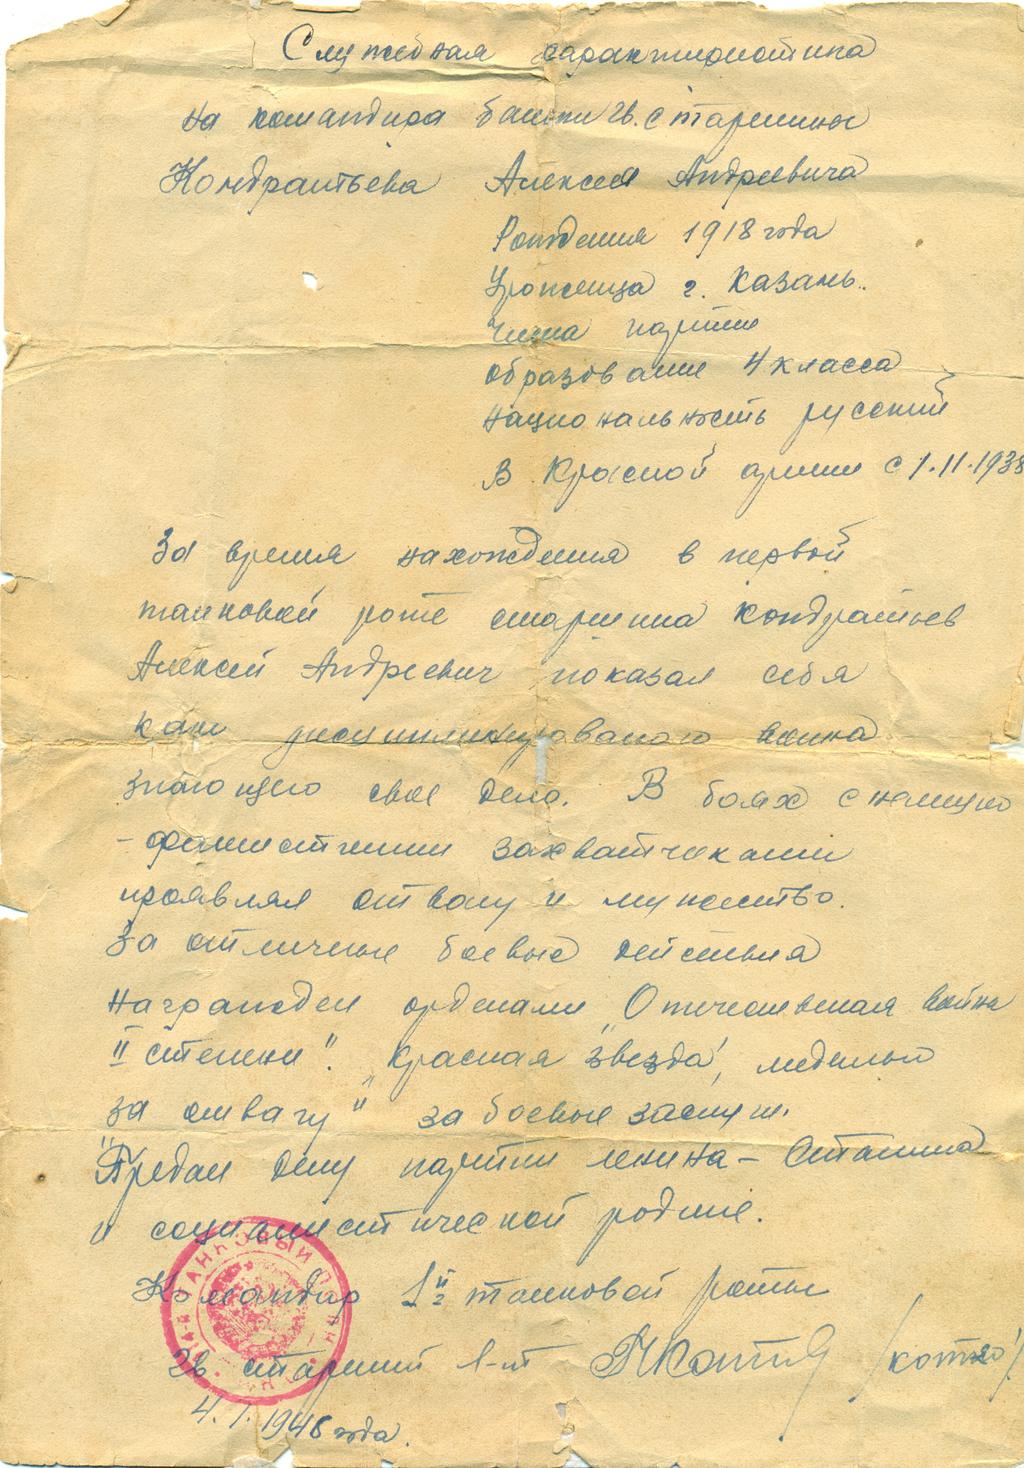 Служебная характиристика
на командира башни гв. старшины
Кондратьева Алексея Андреевича
Рождения 1918 года
Уроженца г. Казань.
члена партии
образование 4 класса
национальность русский
В Красной армии с 1.11.1938
За время нахождения в первой
танковой роте старшина Кондратьев
Алексей Андреевич показал себя
как дисциплинированого воина
знающего свое дело. В боях с немецко
-фашистскими захватчиками
проявлял отвагу и мужество.
За отличные боевые действия
награжден орденами „Отечественная война
II степени". „Красная звезда", медалью
за отвагу" за боевые заслуги.
"Предан делу партии ленина – Сталина
и социалистической родине.
Командир 1й танковой роты
гв старший л-т /котко/
4.1.1946 года.
ТАНКОВЫЙ